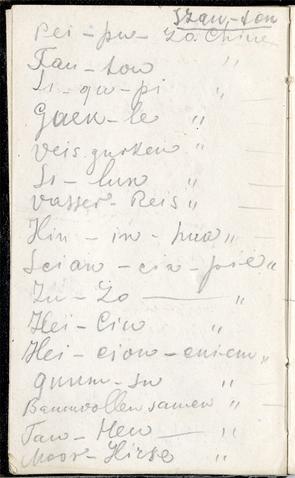 Szan-ton
Pei-pu- Za Chine
Tau-tow "
Si-qu-pi "
Gaek-le "
Veisgurken "
Si-lun "
Vasser-Reis "
Hin-in-hua "
Scian-cin-poie "
Zu-Zo — "
Hei-Cin "
Hei-ciow-eniem "
quum-su "
Baumwollensamen "
Tau-Hen — "
Moor-Hirse "